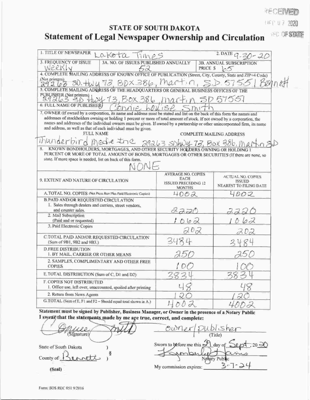 RECEIVED
STATE OF SOUTH DAKOTA
Statement of Legal Newspaper Ownership and Circulation
1. TITLE OF NEWSPAPER Lakota Times 2. DATE 9-30-20
3. FREQUENCY OF ISSUE Weekly 3A. NO. OF ISSUES PUBLISHED ANNUALLY 3B. SUBSCRIPTION PRICE $ 65
4. COMPLETE MAILING ADDRESS OF KNOWN OFFICE OF PUBLICATION (Street, City, County, State and ZIP+4 Code)
(Not printers)
Hwy 73 Box 386, Martin, SD 57551 Bennett
5. COMPLETE MAILING ADDRESS OF THE HEADQUARTERS OR GENERAL BUSINESS OFFICES OF THE
PUBLISHER (Not printers)
Hwy 73, Box 386 Martin SD 57551
6. FULL NAME OF PUBLISHER Connie Louise Smith
7. OWNER (If owned by a corporation, its name and address must be stated and list on the back of this form the names and
addresses of stockholders owning or holding 1 percent or more of total amount of stock. If not owned by a corporation, the
names and addresses of the individual owners must be given. If owned by a partnership or other unincorporated firm, its name
and address, as well as that of each individual must be given.
FULL NAME COMPLETE MAILING ADDRESS
Hwy 73, Box 386 Martin SD
8. KNOWN BONDHOLDERS, MORTGAGES, AND OTHER SECURITY HOLDERS OWNING OR HOLDING 1
PERCENT OR MORE OF TOTAL AMOUNT OF BONDS, MORTGAGES OR OTHER SECURITIES (If there are none, so
state. If more space is needed, list on back of this form.
NONE
9. EXTENT AND NATURE OF CIRCULATION
AVERAGE NO. COPIES EACH ISSUES PRECEDING 12 MONTHS
ACTUAL NO. COPIES ISSUED NEAREST TO FILING DATE
A. TOTAL NO. COPIES 4002 4002
B. PAID AND/OR REQUESTED CIRCULATION
1. Sales through dealers and carriers, street vendors, and counter sales 2220 2220
2. Mail Subscription (Paid and or requested) 1062 1062
3. Paid Electronic Copies 202 202
C. TOTAL PAID AND/OR REQUESTED CIRCULATION
(Sum of 9B1, 9B2 and 9B3.) 3484 3484
D. FREE DISTRIBUTION
1. BY MAIL, CARRIER OR OTHER MEANS 250 250
2. SAMPLES, COMPLIMENTARY AND OTHER FREE COPIES 100 100
E. TOTAL DISTRIBUTION (Sum of C, D1 and D2) 3834 3834
F. COPIES NOT DISTRIBUTED
1. Office use, left over, unaccounted, spoiled after printing 48 48
2. Return from News Agents 120 120
G. TOTAL (Sum of E, F1 and F2 – Should equal total shown in A.) 4002 4002
Statement must be signed by Publisher, Business Manager, or Owner in the presence of a Notary Public
I swear that the statements made by me are true, correct, and complete:
Connie Smith owner/publisher
(Signature) (Title)
State of South Dakota )
County of Bennett )
Sworn to before me this day of Sept 2020
Notary Public
(Seal) My commission expires: 3-7-24